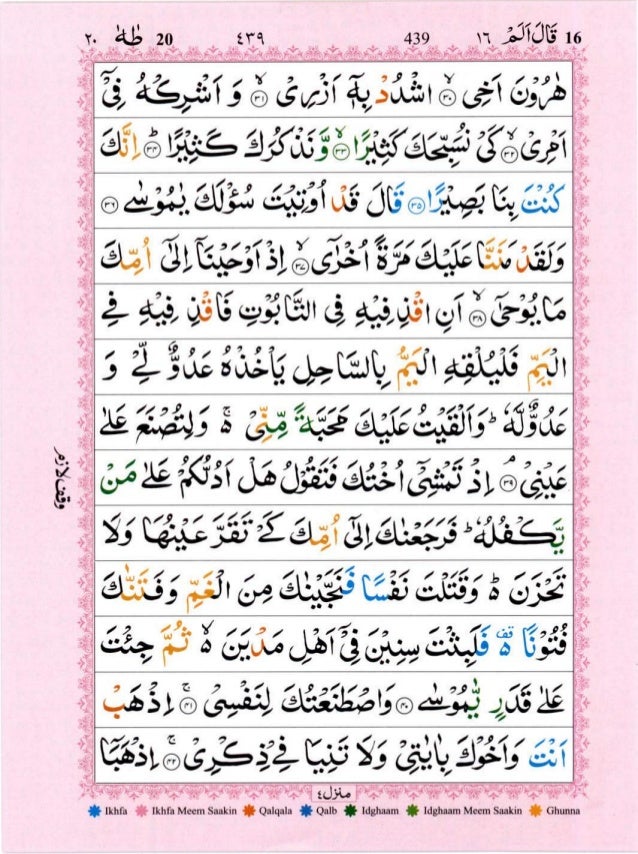 ٢٠ طٰهٰ 20 ٤٣٩ 439 ١٦ قَالَ اَلَمْ 16
هٰرُوْنَ اَخِی ۙ‏﴿۳۰﴾ اشْدُدْ بِهٖۤ اَزْرِیْ ۙ‏﴿۳۱﴾ وَ اَشْرِكْهُ فِیْۤ
اَمْرِیْ ۙ‏﴿۳۲﴾ كَیْ نُسَبِّحَكَ كَثِیْرًا ۙ‏﴿۳۳﴾ وَّ نَذْكُرَكَ كَثِیْرًا ؕ‏﴿۳۴﴾ اِنَّكَ
كُنْتَ بِنَا بَصِیْرًا ‏﴿۳۵﴾ قَالَ قَدْ اُوْتِیْتَ سُؤْلَكَ یٰمُوْسٰی ‏﴿۳۶﴾
وَلَقَدْ مَنَنَّا عَلَیْكَ مَرَّةً اُخْرٰۤی ۙ‏﴿۳۷﴾ اِذْ اَوْحَیْنَاۤ اِلٰۤی اُمِّكَ
مَا یُوْحٰۤی ۙ‏﴿۳۸﴾ اَنِ اقْذِفِیْهِ فِی التَّابُوْتِ فَاقْذِفِیْهِ فِی
الْیَمِّ فَلْیُلْقِهِ الْیَمُّ بِالسَّاحِلِ یَاْخُذْهُ عَدُوٌّ لِّیْ وَ
عَدُوٌّ لَّهٗ ؕ وَاَلْقَیْتُ عَلَیْكَ مَحَبَّةً مِّنِّیْ ۬ۚ وَلِتُصْنَعَ عَلٰی
عَیْنِیْ ۘ‏﴿۳۹﴾ اِذْ تَمْشِیْۤ اُخْتُكَ فَتَقُوْلُ هَلْ اَدُلُّكُمْ عَلٰی مَنْ
یَّكْفُلُهٗ ؕ فَرَجَعْنٰكَ اِلٰۤی اُمِّكَ كَیْ تَقَرَّ عَیْنُهَا وَلَا
تَحْزَنَ ۬ؕ وَقَتَلْتَ نَفْسًا فَنَجَّیْنٰكَ مِنَ الْغَمِّ وَفَتَنّٰكَ
فُتُوْنًا ۬۫ فَلَبِثْتَ سِنِیْنَ فِیْۤ اَهْلِ مَدْیَنَ ۬ۙ ثُمَّ جِئْتَ
عَلٰی قَدَرٍ یّٰمُوْسٰی ‏﴿۴۰﴾ وَاصْطَنَعْتُكَ لِنَفْسِیْ ۚ‏﴿۴۱﴾ اِذْهَبْ
اَنْتَ وَاَخُوْكَ بِاٰیٰتِیْ وَلَا تَنِیَا فِیْ ذِكْرِیْ ۚ‏﴿۴۲﴾ اِذْهَبَاۤ
وقف لازم
منزل٤
Ikhfa Ikhfa Meem Saakin Qalqala Qalb Idghaam Idghaam Meem Saakin Ghunna